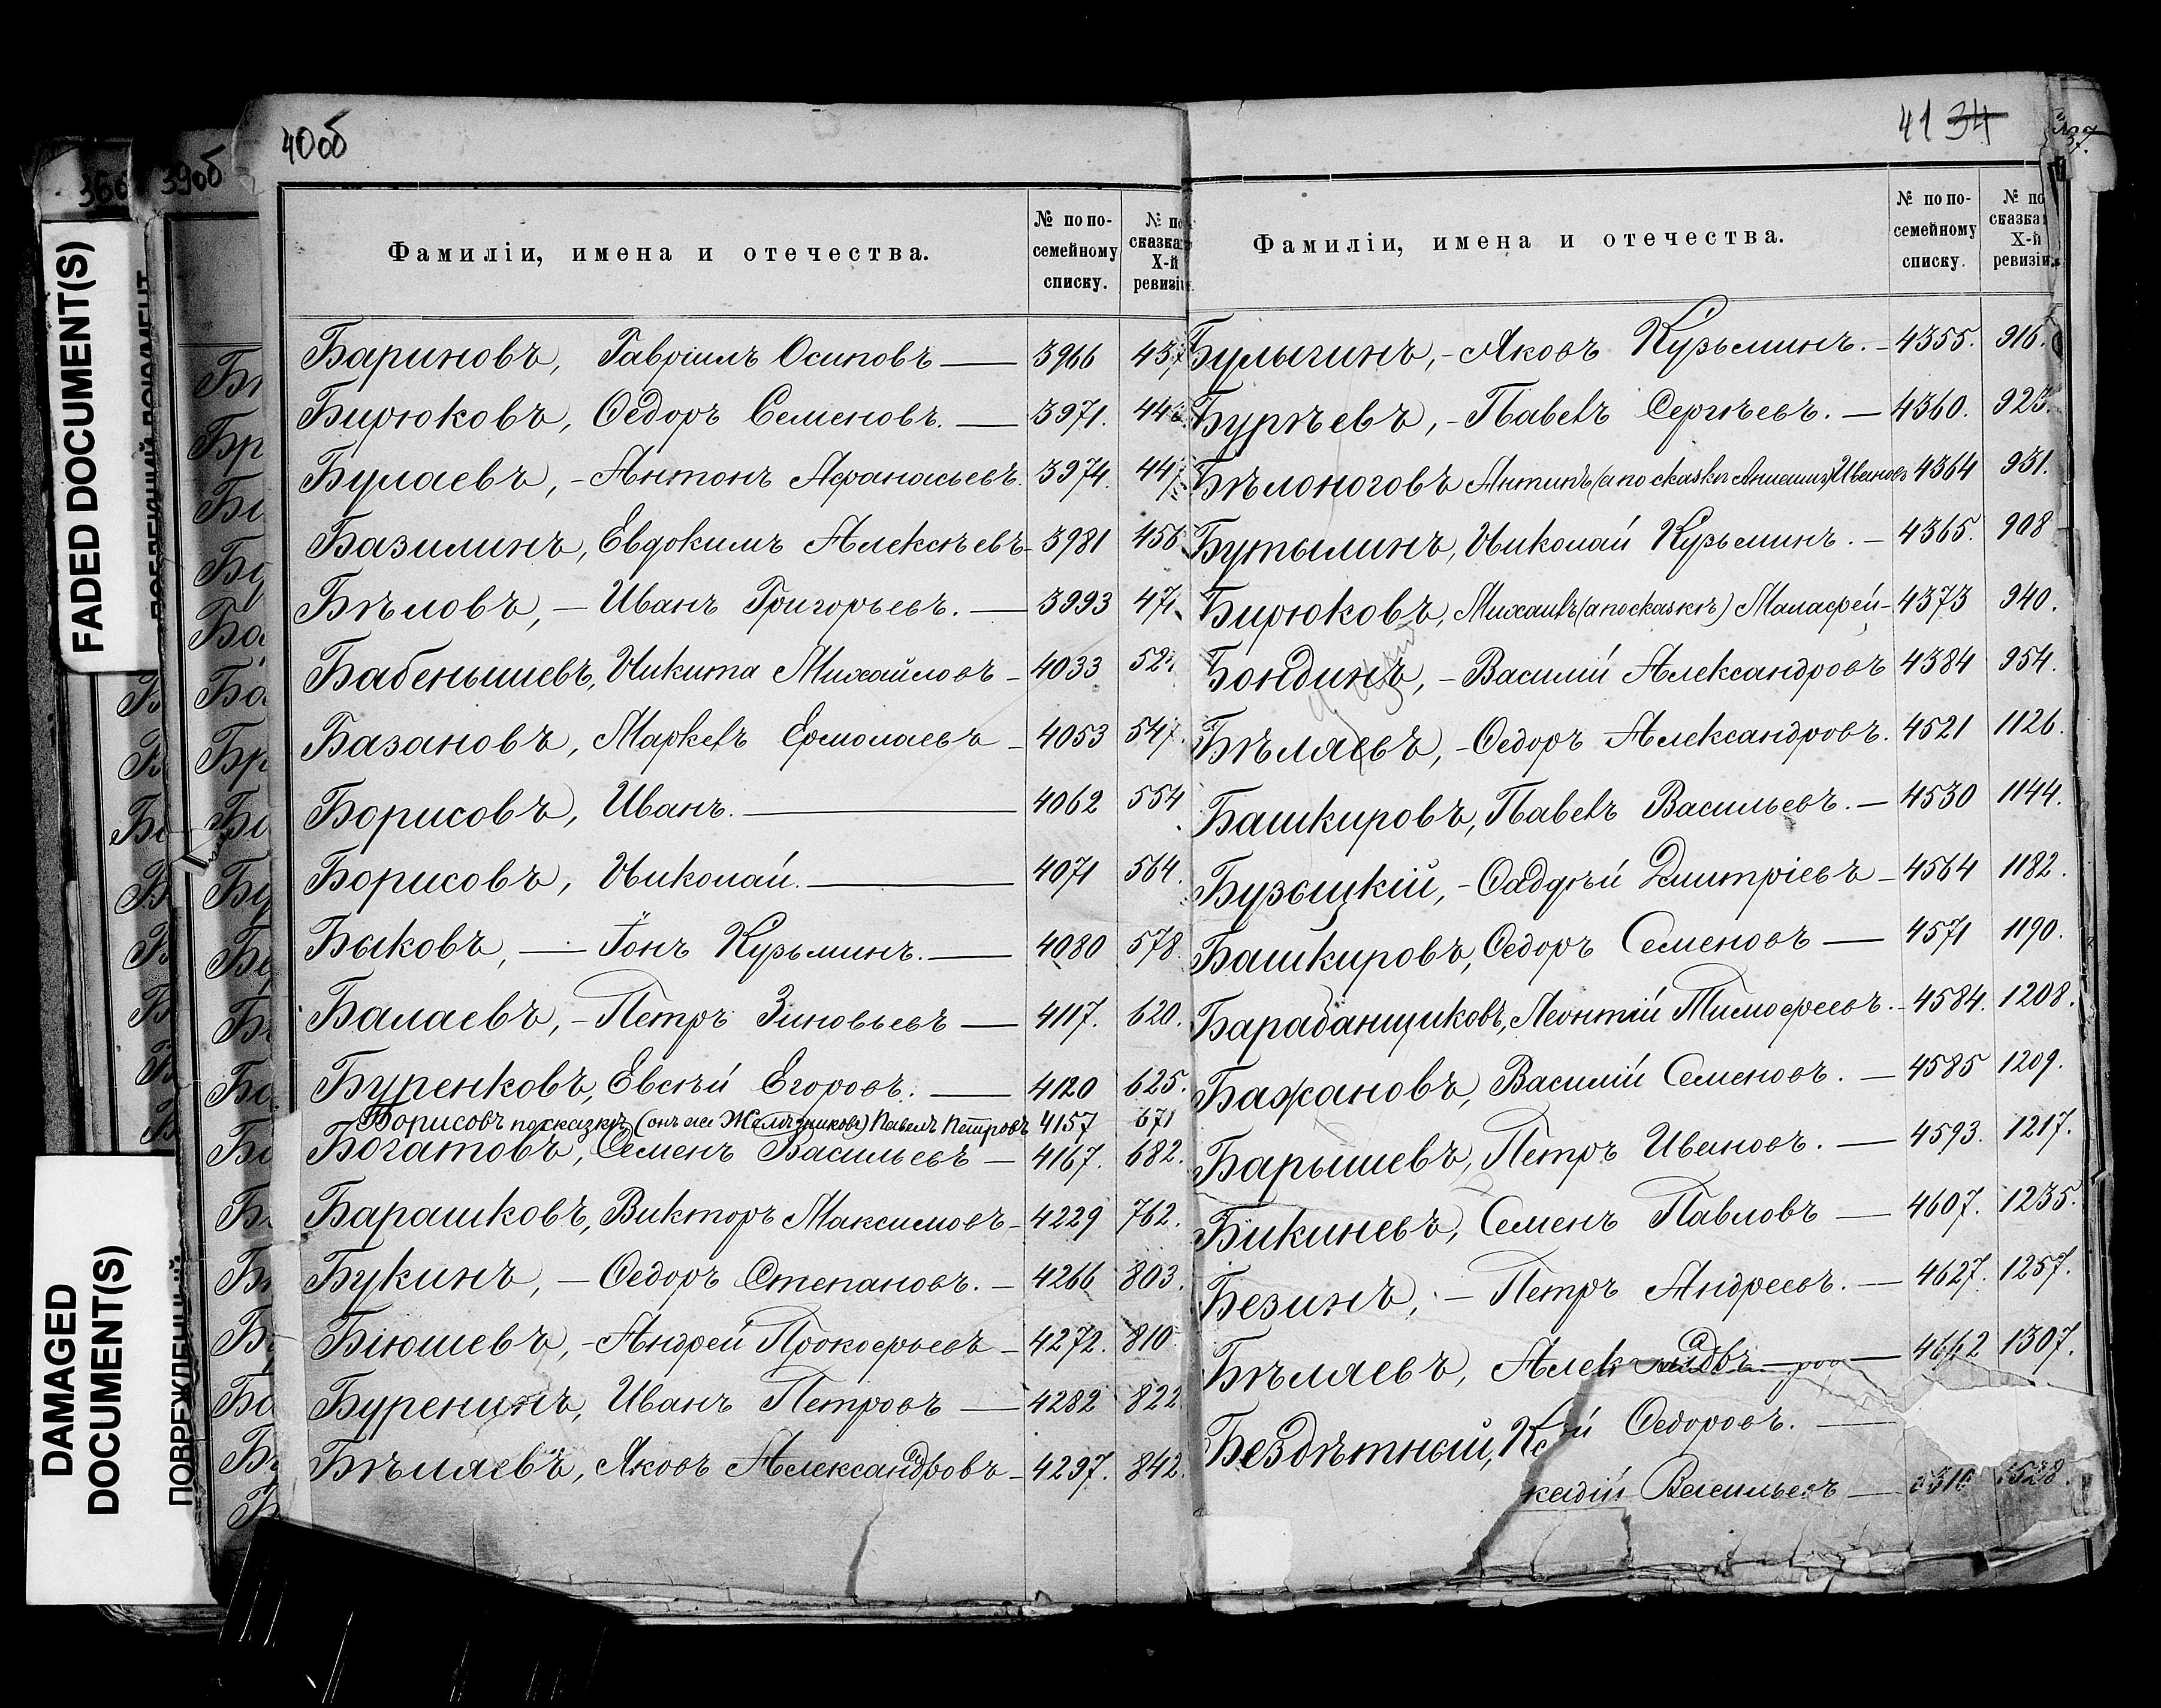 40об
Фамиліи, имена и отечества.
№ по по-
семейному
списку.
№ по
сказка
X-й
ревизіи
Бариновъ, Гавріилъ Осиповъ — 3966 437
Бирюковъ, Ѳедоръ Семеновъ. — 3971. 443
Булаевъ, - Антонъ Афанасьевъ. 3974. 447
Базилинъ, Евдокимъ Алексѣевъ - 3981 456
Бѣловъ, — Иванъ Григорьевъ. — 3993 471
Бабенышевъ, Никита Михайловъ - 4033 52
Базановъ, Маркелъ Ермолаевъ - 4053 547.
Борисовъ, Иванъ. — 4062 554
Борисовъ, Николай. — 4071 564.
Быковъ, — Іонъ Кузьминъ. — 4080 578.
Балаевъ, - Петръ Зиновьевъ — 4117. 620.
Буренковъ, Евсѣй Егоровъ. — 4120 625.
Борисовъ по сказкѣ (онъ же Желѣзниковъ) Павелъ Петровъ 4157 671
Богатовъ, Семенъ Васильевъ — 4167. 682.
Барашковъ, Викторъ Максимовъ - 4229 762.
Букинъ, — Ѳедоръ Степановъ. — 4266 803.
Біюшевъ, - Андрей Прокофьевъ - 4272. 810
Буренинъ, Иванъ Петровъ — 4282 822
Бѣляевъ, Яковъ Александровъ - 4297. 842.
41 34
Фамиліи, имена и отечества.
№ по по-
семейному
списку.
№ по
сказка
X-й
ревизіи.
Булыгинъ, - Яковъ Кузьминъ. - 4355. 916.
Бурѣевъ, - Павелъ Сергѣевъ. — 4360. 923.
Бѣлоноговъ Антипъ (а по сказкѣ) Ивановъ 4364 931.
Бутылинъ, Николай Кузьминъ. — 4365. 908
Бирюковъ, Михаилъ (а по сказкѣ) Малафей - 4373 940.
Бондинъ, - Василій Александровъ 4384 954.
Бѣляевъ, - Ѳедоръ Александровъ. 4521 1126.
Башкировъ, Павелъ Васильевъ. — 4530 1144.
Бузыцкій, - Ѳаддѣй Дмитріевъ - 4564 1182.
Башкировъ, Ѳедоръ Семеновъ — 4571 1190.
Барабанщиковъ, Леонтій Тимофеевъ. - 4584. 1208.
Бажановъ, Василій Семеновъ. — 4585 1209.
Барышевъ, Петръ Ивановъ. — 4593. 1217.
Бикиневъ, Семенъ Павловъ — 4607. 1235.
Безинъ, - Петръ Андреевъ. — 4627. 1257.
Бѣляевъ, Алек — 4662 1307.
Бездѣтный, й Ѳедоровъ. —
кадій Васильевъ — 1528.
FADED DOCUMENT(S)
DAMAGED
DOCUMENT(S)
39об